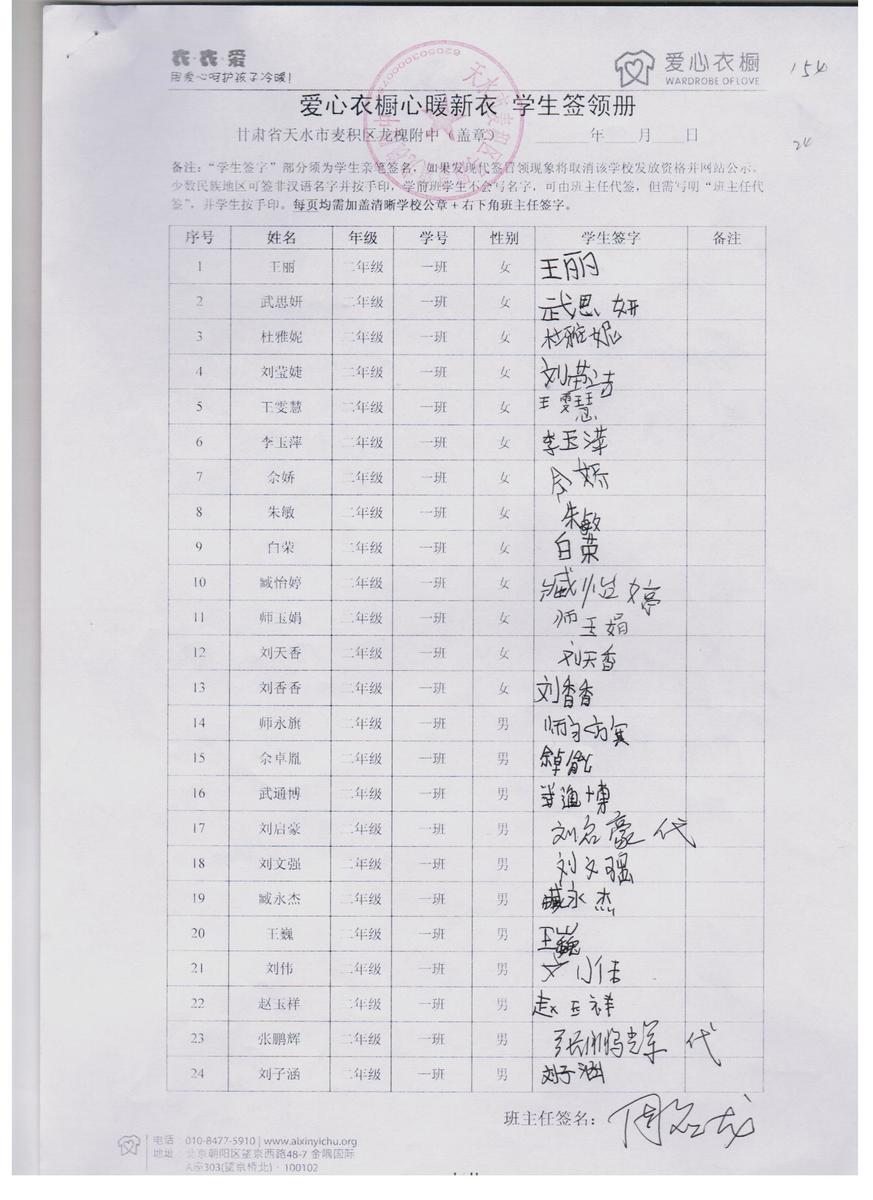 衣·衣·爱
用爱心呵护孩子冷暖!
爱心衣橱
WARDROBE OF LOVE
154
爱心衣橱心暖新衣 学生签领册
甘肃省天水市麦积区龙槐附中（盖章） ______年____月____日
24
备注：“学生签字”部分须为学生亲笔签名，如果发现代签冒领现象将取消该学校发放资格并网站公示。
少数民族地区可签非汉语名字并按手印，学前班学生不会写名字，可由班主任代签，但需写明“班主任代
签”，并学生按手印。每页均需加盖清晰学校公章+右下角班主任签字。
序号 姓名 年级 学号 性别 学生签字 备注
1 王丽 二年级 一班 女 王丽
2 武思妍 二年级 一班 女 武思妍
3 杜雅妮 二年级 一班 女 杜雅妮
4 刘莹婕 二年级 一班 女 刘
5 王雯慧 二年级 一班 女 王雯慧
6 李玉萍 二年级 一班 女 李玉萍
7 佘娇 二年级 一班 女 娇
8 朱敏 二年级 一班 女 朱敏
9 白荣 二年级 一班 女 白荣
10 臧怡婷 二年级 一班 女 臧怡婷
11 师玉娟 二年级 一班 女 师玉娟
12 刘天香 二年级 一班 女 刘天香
13 刘香香 二年级 一班 女 刘香香
14 师永旗 二年级 一班 男 师
15 佘卓胤 二年级 一班 男
16 武通博 二年级 一班 男 通博
17 刘启豪 二年级 一班 男 刘启豪 代
18 刘文强 二年级 一班 男 刘文强
19 臧永杰 二年级 一班 男 臧永杰
20 王巍 二年级 一班 男 王巍
21 刘伟 二年级 一班 男
22 赵玉祥 二年级 一班 男 赵玉祥
23 张鹏辉 二年级 一班 男 张鹏辉 代
24 刘子涵 二年级 一班 男 刘子涵
班主任签名：
电话 010-8477-5910 | www.aixinyichu.org
地址 北京朝阳区望京西路48-7 金隅国际
A座303(望京桥北) · 100102